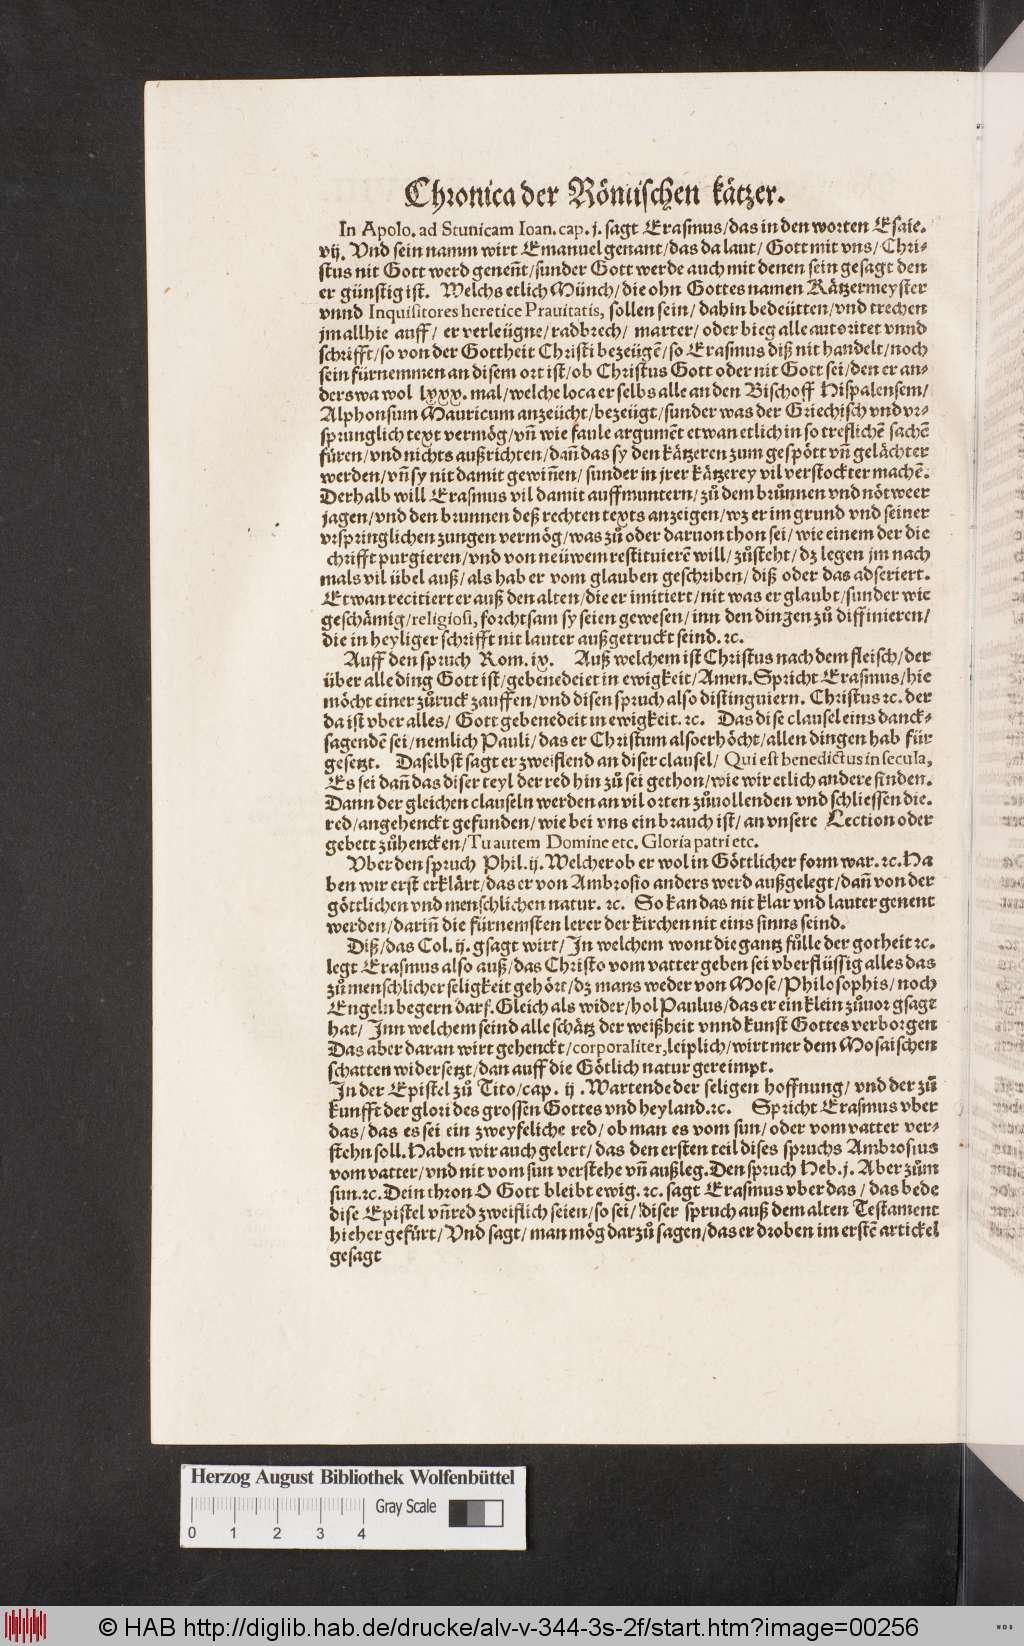 Chronica der Römischen kätzer.
In Apolo. ad Stunicam Ioan. cap. j. sagt Erasmus/das in den worten Esaie.
vij. Vnd sein namm wirt Emanuel genant/das da laut/ Gott mit vns/ Chri-
stus nit Gott werd geneñt/sunder Gott werde auch mit denen sein gesagt den
er günstig ist. Welchs etlich Münch/die ohn Gottes namen Kätzermeyster
vnnd Inquisitores heretice Prauitatis, sollen sein/ dahin bedeütten/vnd trechen
jm allhie auff/ er verleügne/radbrech/ marter/ oder bieg alle autoritet vnnd
schrifft/so von der Gottheit Christi bezeügẽ/so Erasmus diß nit handelt/noch
sein fürnemmen an disem ort ist/ob Christus Gott oder nit Gott sei/den er an-
derswa wol lxxx. mal/welche loca er selbs alle an den Bischoff Hispalensem/
Alphonsum Mauricum anzeücht/bezeügt/sunder was der Griechisch vnd vr-
sprunglich text vermög/vñ wie faule argumẽt etwan etlich in so treflichẽ sachẽ
füren/vnd nichts außrichten/dañ das sy den kätzeren zum gespött vñ gelächter
werden/vñ sy nit damit gewiñen/ sunder in jrer kätzerey vil verstockter machẽ.
Derhalb will Erasmus vil damit auffmuntern/zů dem brůnnen vnd nötweer
jagen/vnd den brunnen deß rechten texts anzeigen/wz er im grund vnd seiner
vrspringlichen zungen vermög/was zů oder daruon thon sei/wie einem der die
chrifft purgieren/vnd von neüwem restituierẽ will/zůsteht/dz legen jm nach
mals vil übel auß/als hab er vom glauben geschriben/diß oder das adseriert.
Etwan recitiert er auß den alten/die er imitiert/nit was er glaubt/sunder wie
geschämig/religiosi, forchtsam sy seien gewesen/inn den dingen zů diffinieren/
die in heyliger schrifft nit lauter außgetruckt seind. ꝛc.
Auff den spruch Rom. ix. Auß welchem ist Christus nach dem fleisch/der
über alle ding Gott ist/gebenedeiet in ewigkeit/Amen. Spricht Erasmus/hie
möcht einer zůruck zauffen/vnd disen spruch also distinguiern. Christus ꝛc. der
da ist vber alles/ Gott gebenedeit in ewigkeit. ꝛc. Das dise clausel eins danck-
sagendẽ sei/nemlich Pauli/das er Christum also erhöcht/allen dingen hab für
gesetzt. Daselbst sagt er zweiflend an diser clausel/ Qui est benedictus in secula,
Es sei dañ das diser teyl der red hin zů sei gethon/wie wir etlich andere finden.
Dann der gleichen clauseln werden an vil orten zůuollenden vnd schliessen die.
red/angehenckt gefunden/wie bei vns ein brauch ist/an vnsere Lection oder
gebett zůhencken/Tu autem Domine etc. Gloria patri etc.
Vber den spruch Phil. ij. Welcher ob er wol in Göttlicher form war. ꝛc. Ha
ben wir erst erklärt/das er von Ambrosio anders werd außgelegt/dañ von der
göttlichen vnd menschlichen natur. ꝛc. So kan das nit klar vnd lauter genent
werden/dariñ die fürnemsten lerer der kirchen nit eins sinns seind.
Diß/das Col. ij. gsagt wirt/In welchem wont die gantz fülle der gotheit ꝛc.
legt Erasmus also auß/das Christo vom vatter geben sei vberflüssig alles das
zů menschlicher seligkeit gehört/dz mans weder von Mose/Philosophis/noch
Engeln begern darf. Gleich als wider/hol Paulus/das er ein klein zůuor gsagt
hat/ Inn welchem seind alle schätz der weißheit vnnd kunst Gottes verborgen
Das aber daran wirt gehenckt/corporaliter, leiplich/wirt mer dem Mosaischen
schatten widersetzt/dan auff die Götlich natur gereimpt.
In der Epistel zů Tito/cap. ij. Wartende der seligen hoffnung/ vnd der zů
kunfft der glori des grossen Gottes vnd heyland. ꝛc. Spricht Erasmus vber
das/das es sei ein zweyfeliche red/ob man es vom sun/oder vom vatter ver-
stehn soll. Haben wir auch gelert/das den ersten teil dises spruchs Ambrosius
vom vatter/vnd nit vom sun verstehe vñ außleg. Den spruch Heb. j. Aber zům
sun. ꝛc. Dein thron O Gott bleibt ewig. ꝛc. sagt Erasmus vber das/das bede
dise Epistel vñ red zweiflich seien/so sei/diser spruch auß dem alten Testament
hieher gefürt/Vnd sagt/man mög darzů sagen/das er droben im erstẽ artickel
gesagt
Herzog August Bibliothek Wolfenbüttel
Gray Scale
0 1 2 3 4
© HAB http://diglib.hab.de/drucke/alv-v-344-3s-2f/start.htm?image=00256